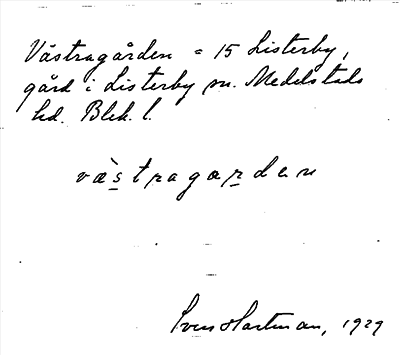 Västragården = 15 Listerby,
gård i Listerby sn. Medelstads
hd. Blek. l.
væ̀s̲tragar̲den
Sven Hartman, 1929